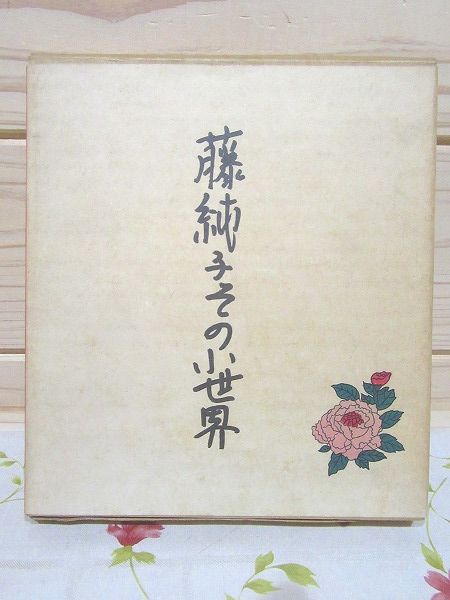 藤純子その小世界